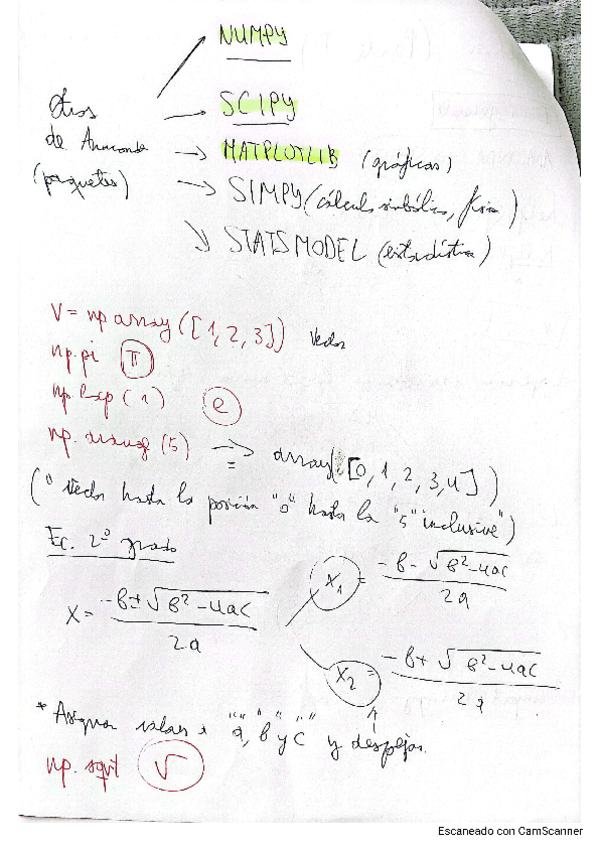 NUMPY
Otros
de Anaconda
(paquetes)
SCIPY
MATPLOTLIB (gráficas)
SIMPY (cálculo simbólico, física)
STATSMODEL (estadística)
V = np array ([1, 2, 3]) Vector
np.pi π
np.exp (1) e
np. arange (5) → array([0, 1, 2, 3, 4])
("Vector hasta la posición "0" hasta la "5" inclusive")
Ec. 2º grado
X = -b±√b²-4ac / 2a
X₁ = -b-√b²-4ac / 2a
X₂ = -b+√b²-4ac / 2a
* Asignar valores a "a", "b" y "c" y despejar.
np. sqrt √
Escaneado con CamScanner